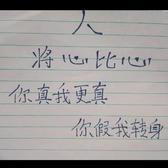 人
將心比心
你真我更真
你假我转身